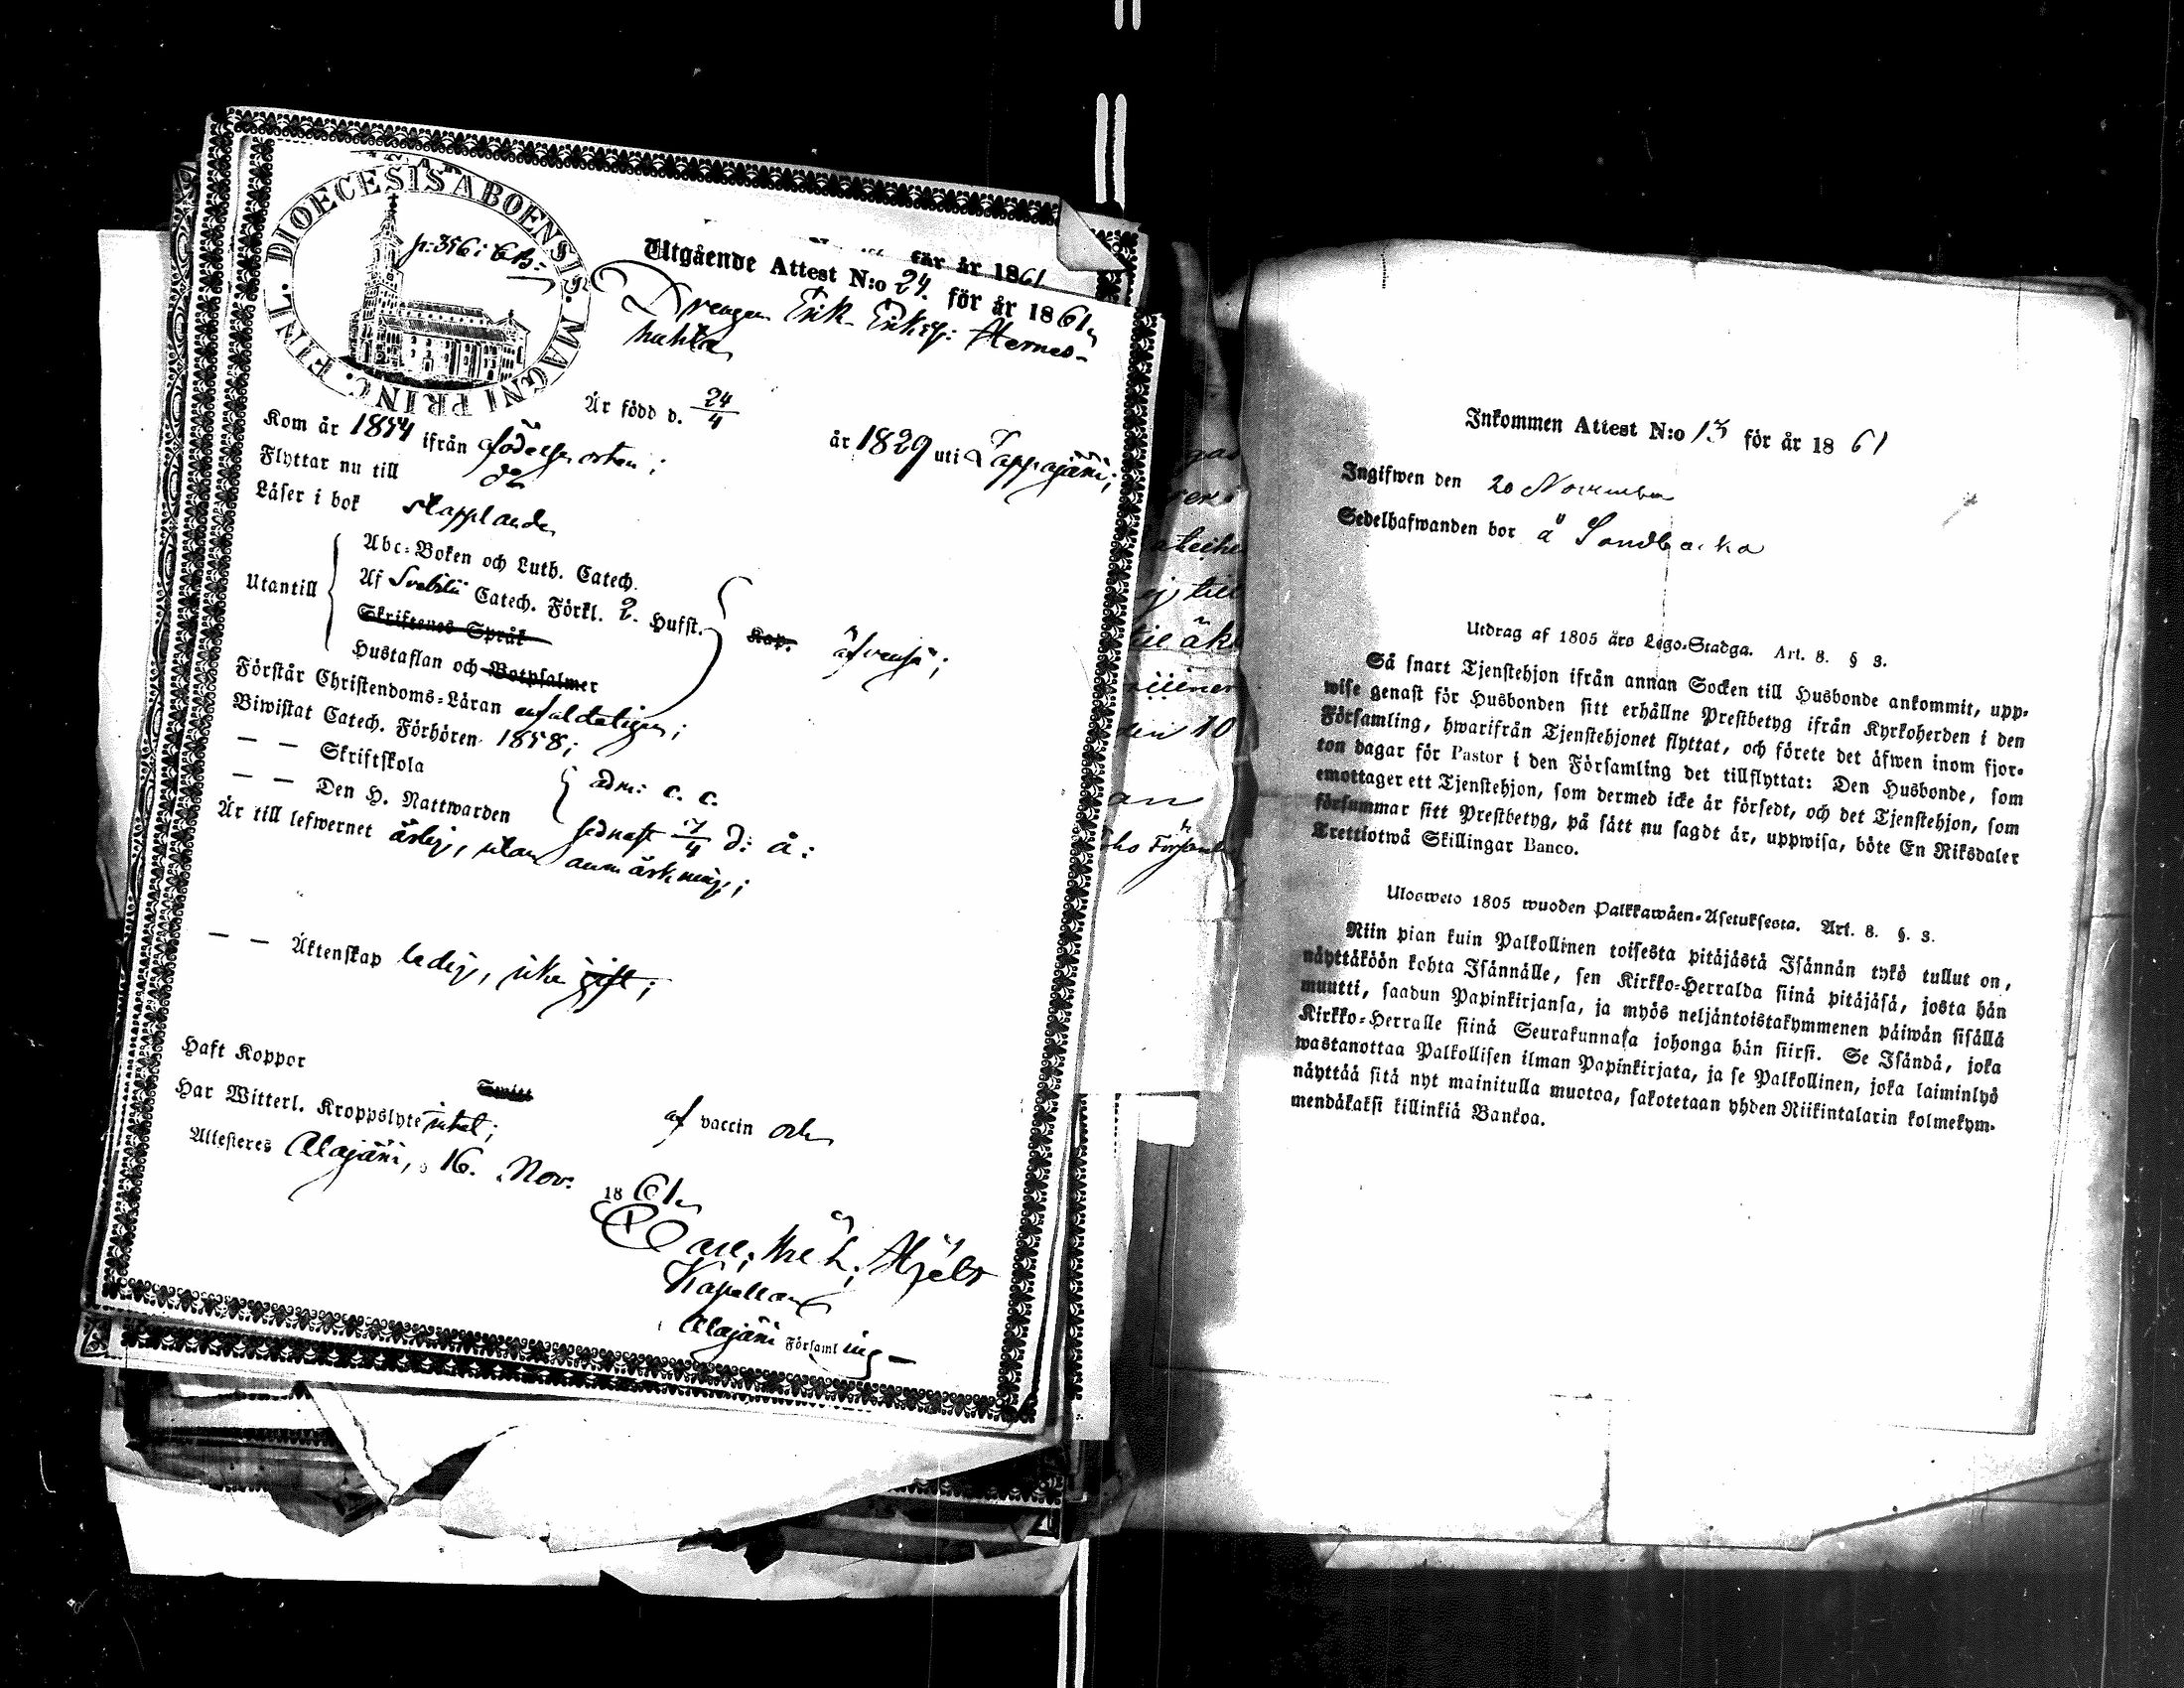 DIOECESIS ABOENSIS. MAGNI PRINC. FINL.
p: 356: C B:
för år 1861
Utgående Attest N:o 24. för år 1861
Drengen Erik Eriksp: Hernes-
huhta
Är född d. 24/4 år 1829 uti Lappajärvi;
Kom år 1854 ifrån födelse orten;
Flyttar nu till do
Läser i bok stapplande
Utantill
Abc-Boken och Luth. Catech.
Af Svebilii Catech. Förkl. 2. Hufst.
Skriftenes Språk
Hustaflan och Botpsalmer
Kap. äfvenså;
Förstår Christendoms-Läran enfaldeligen;
Biwistat Catech. Förhören 1858;
— — Skriftskola
— — Den H. Nattwarden
adm: c. c.
sednast 7/4 d: å:
Är till lefwernet ärlig, utan anmärkning;
— — Äktenskap ledig, icke gift;
Haft Koppor
Smitt
af vaccin och
Har Witterl. Kroppslyte intet;
Attesteres Alajärvi, 16. Nov: 1861
Kapellan
Alajärvi Församling
Inkommen Attest N:o 13 för år 1861
Ingifwen den 20 November
Sedelhafwanden bor å Sandbacka
Utdrag af 1805 års Lego-Stadga. Art. 8. § 3.
Så snart Tjenstehjon ifrån annan Socken till Husbonde ankommit, upp-
wise genast för Husbonden sitt erhållne Prestbetyg ifrån Kyrkoherden i den
Församling, hwarifrån Tjenstehjonet flyttat, och förete det äfwen inom fjor-
ton dagar för Pastor i den Församling det tillflyttat: Den Husbonde, som
emottager ett Tjenstehjon, som dermed icke är försedt, och det Tjenstehjon, som
försummar sitt Prestbetyg, på sätt nu sagdt är, uppwisa, böte En Riksdaler
Trettiotwå Skillingar Banco.
Ulosweto 1805 wuoden Palkkawäen-Asetuksesta. Art. 8. §. 3.
Niin pian kuin Palkollinen toisesta pitäjästä Isännän tykö tullut on,
näyttäköön kohta Isännälle, sen Kirkko-Herralda siinä pitäjäsä, josta hän
muutti, saadun Papinkirjansa, ja myös neljäntoistakymmenen päiwän sisällä
Kirkko-Herralle siinä Seurakunnasa johonga hän siirsi. Se Isändä, joka
wastanottaa Palkollisen ilman Papinkirjata, ja se Palkollinen, joka laiminlyö
näyttää sitä nyt mainitulla muotoa, sakotetaan yhden Riikintalarin kolmekym-
mendäkaksi killinkiä Bankoa.